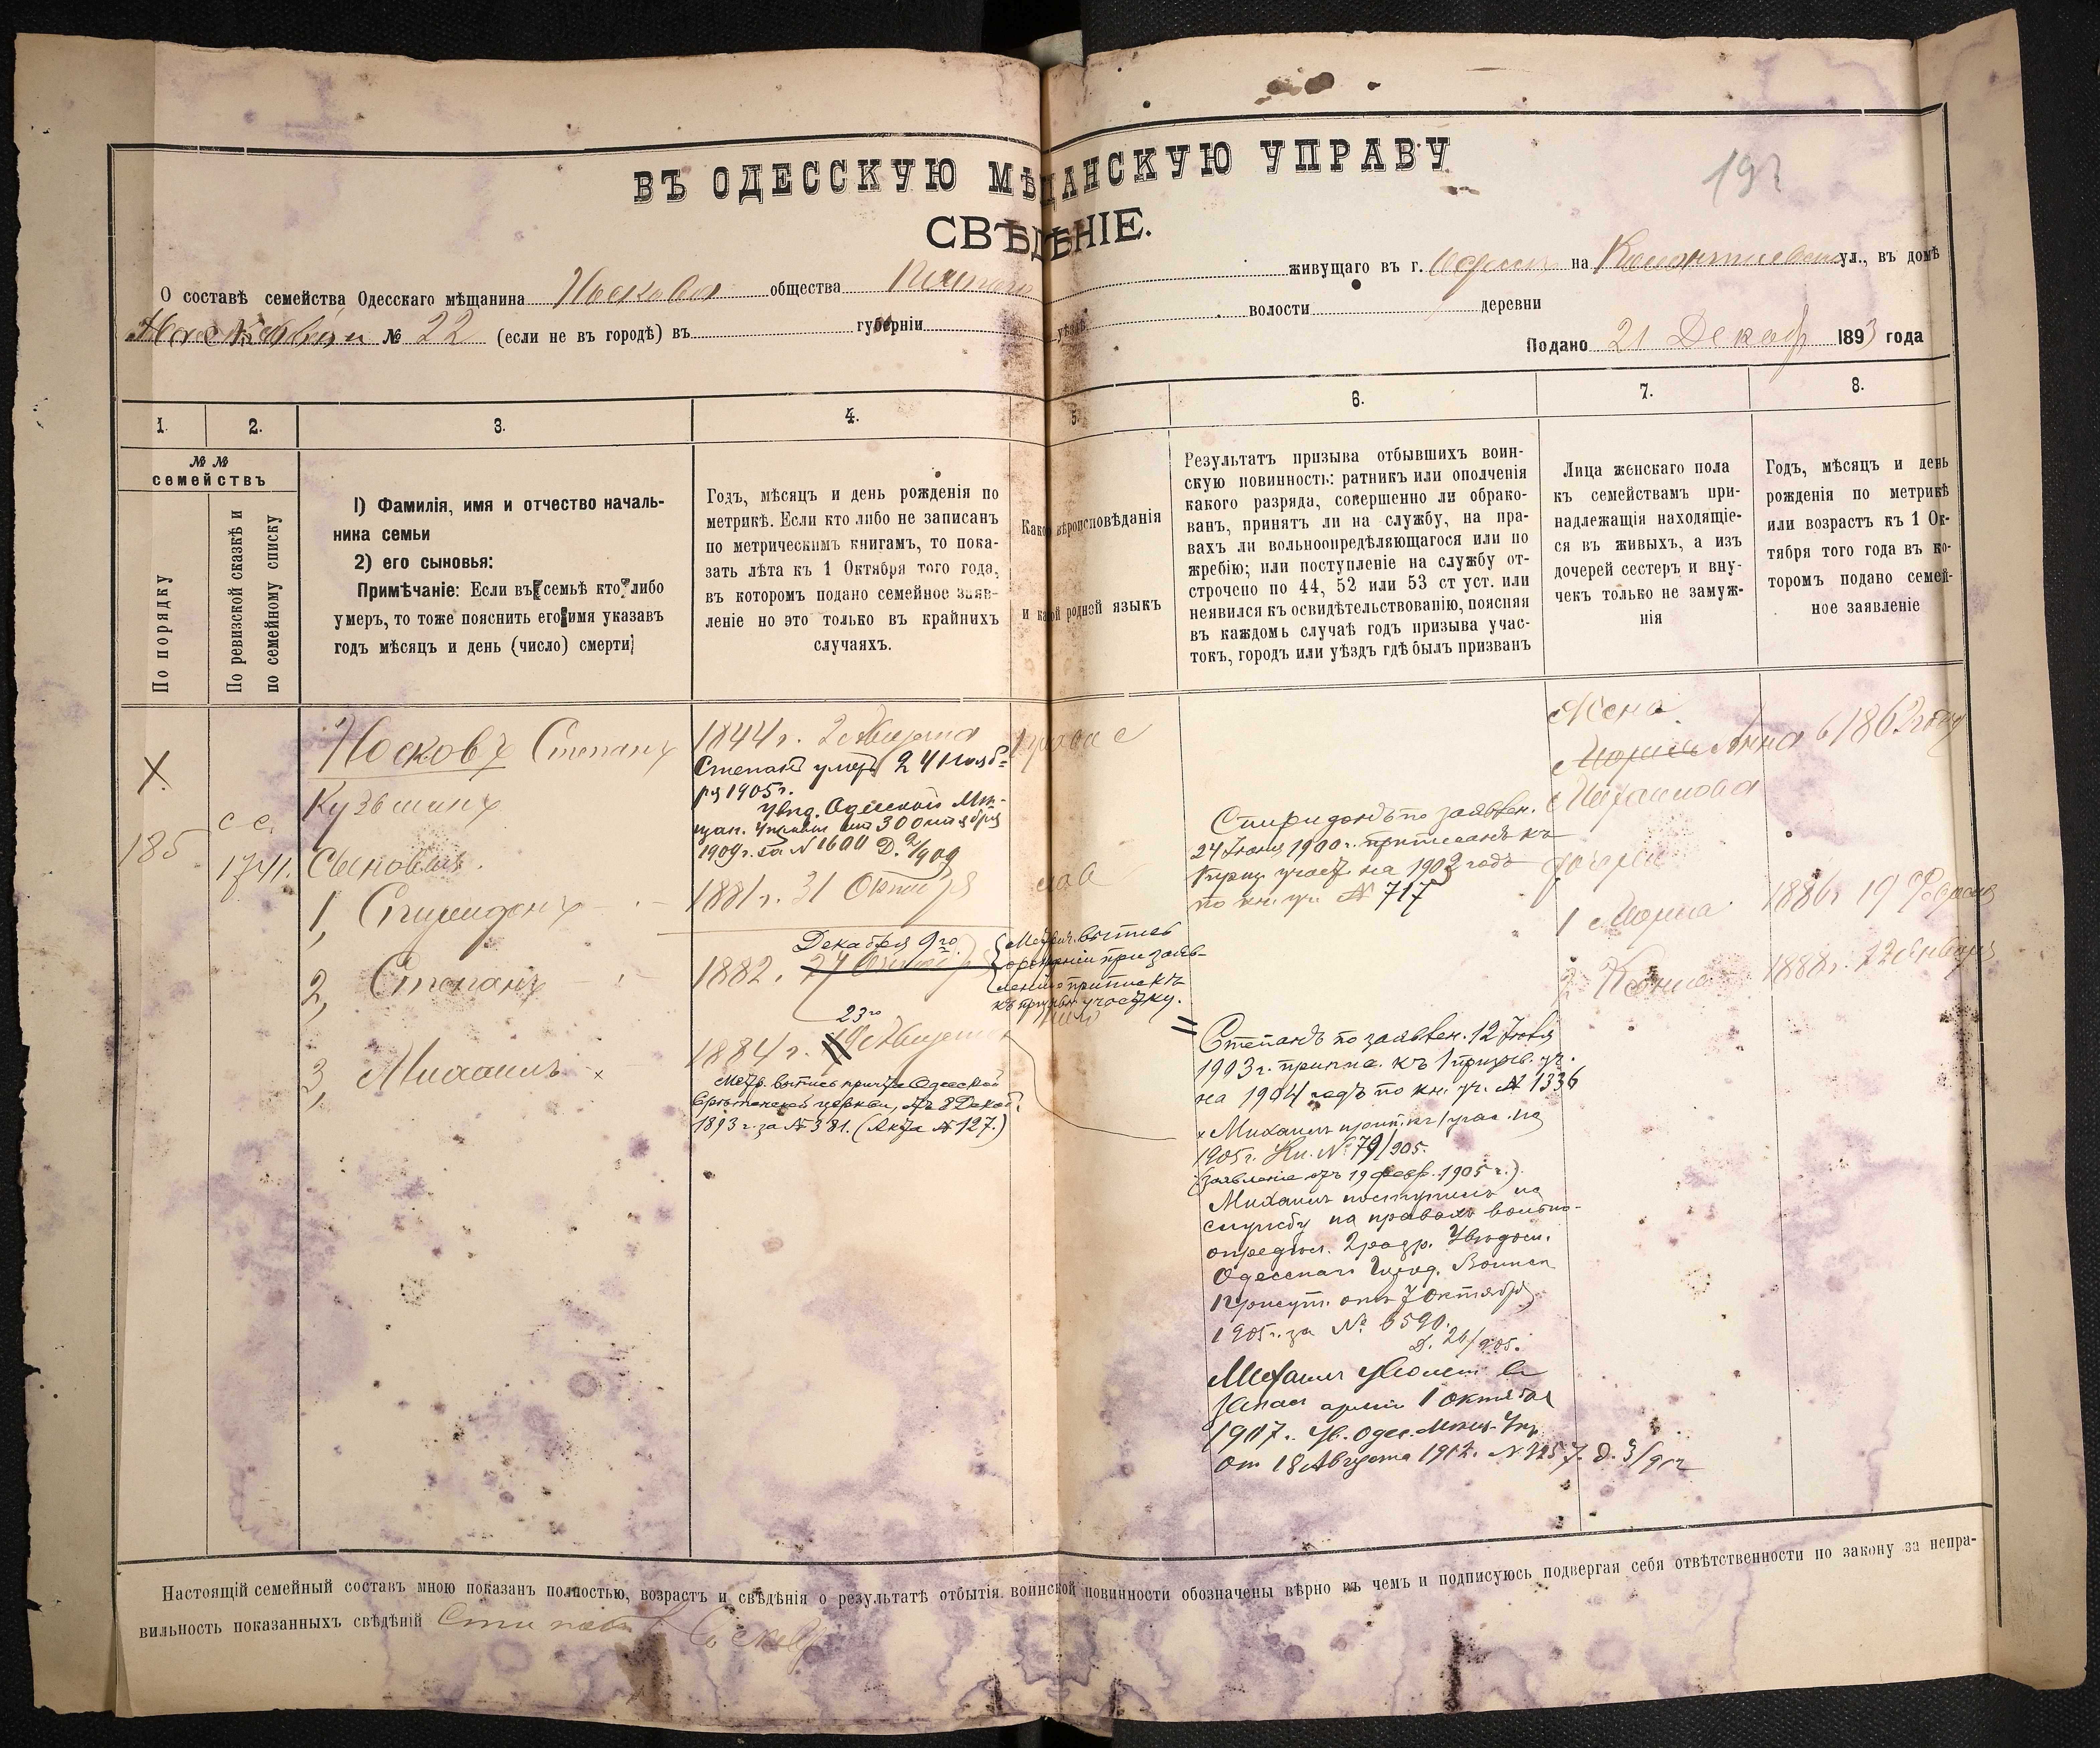 192
ВЪ ОДЕССКУЮ МѢЩАНСКУЮ УПРАВУ
СВѢДѢНІЕ.
О составѣ семейства Одесскаго мѣщанина Носкова общества живущаго въ г. Одессѣ на ул., въ домѣ
№ 22 (если не въ городѣ) въ губерніи уѣзда волости деревни
Подано 21 Декабр 1893 года
1. 2. 3. 4. 5. 6. 7. 8.
№ № семействъ
По порядку
По ревизской сказкѣ и по семейному списку
1) Фамилія, имя и отчество началь-
ника семьи
2) его сыновья:
Примѣчаніе: Если въ семьѣ кто либо
умеръ, то тоже пояснить его имя указавъ
годъ мѣсяцъ и день (число) смерти
Годъ, мѣсяцъ и день рожденія по
метрикѣ. Если кто либо не записанъ
по метрическимъ книгамъ, то пока-
зать лѣта къ 1 Октября того года,
въ которомъ подано семейное заяв-
леніе но это только въ крайнихъ
случаяхъ.
Какого вѣроисповѣданія
и какой родной языкъ
Результатъ призыва отбывшихъ воин-
скую повинность: ратникъ или ополченія
какого разряда, совершенно ли обрако-
ванъ, принятъ ли на службу, на пра-
вахъ ли вольноопредѣляющагося или по
жребію; или поступленіе на службу от-
строчено по 44, 52 или 53 ст уст. или
неявился къ освидѣтельствованію, поясняя
въ каждомъ случаѣ годъ призыва учас-
токъ, городъ или уѣздъ гдѣ былъ призванъ
Лица женскаго пола
къ семействамъ при-
надлежащія находящіе-
ся въ живыхъ, а изъ
дочерей сестеръ и вну-
чекъ только не замуж-
нія
Годъ, мѣсяцъ и день
рожденія по метрикѣ
или возрастъ къ 1 Ок-
тября того года въ ко-
торомъ подано семей-
ное заявленіе
X
185
с с.
1741.
Носковъ Степанъ
Кузьминъ
Сыновья.
1, Спиридонъ
2, Степанъ
3, Михаилъ x
1844 г. 2 Августа
Степанъ умеръ 24 Нояб-
ря 1905 г.
Увѣд. Одесской Мѣ-
щан. Управы отъ 30 октября
1909 г. за № 1600 Д. 2/909
1881 г. 31 Октября
Декабря 9го
1882.
23го
1884 г. Августа
Метр. выпись причта Одесской
церкви, отъ 8 Декаб.
1893 г. за № 381. (Акта № 127.)
правос
Метрич. выпись
о рожденіи при заяв-
леніи о припискѣ
къ призывн участку.
Спиридонъ по заявлен.
24 Іюня 1900 г. приписанъ къ
участ. на 1902 годъ
по кн. уч. № 717
= Степанъ по заявлен. 12 Іюня
1903 г. припис. къ 1 призыв. уч.
на 1904 годъ по кн. уч. № 1336
x Михаилъ прип. къ 1 учас. на
1905 г. Кн. № 79/905.
(заявленіе отъ 19 февр. 1905 г.)
Михаилъ поступилъ на
службу на правахъ вольно-
опредѣл. 2 разр. Увѣдом.
Одесскаго Город. Воинск
Присут. отъ 7 октября
1905 г. за № 6590.
Д. 26/905.
Михаилъ уволенъ въ
Запас арміи 1 октября
1907. Ув. Одес. Мѣщ. Упр.
от 18 Августа 1912. № 3257. Д. 3/912
Жена
Анна
Михаилова
Дочери
1 Марія
2 Ксенія
в 1862 году
1886 г 19 Февраля
1888 г. 22 Января
Настоящій семейный составъ мною показанъ полностью, возрастъ и свѣдѣнія о результатѣ отбытія воинской повинности обозначены вѣрно въ чемъ и подписуюсь подвергая себя отвѣтственности по закону за непра-
вильность показанныхъ свѣдѣній Степанъ Носковъ